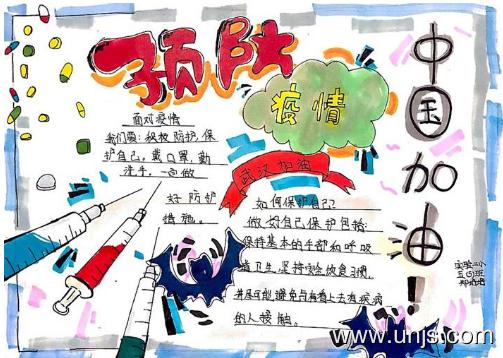 预防
疫情
中国加油!
面对疫情
我们要:积极防护,保
护自己,戴口罩,勤
洗手,一起做
好防护
措施。
武汉加油
如何保护自己?
做好自己保护包括:
保持基本的手部和呼吸
道卫生,坚持安全饮食习惯,
并尽可能避免与有看上去有疾病
的人接触。
www.unjs.com